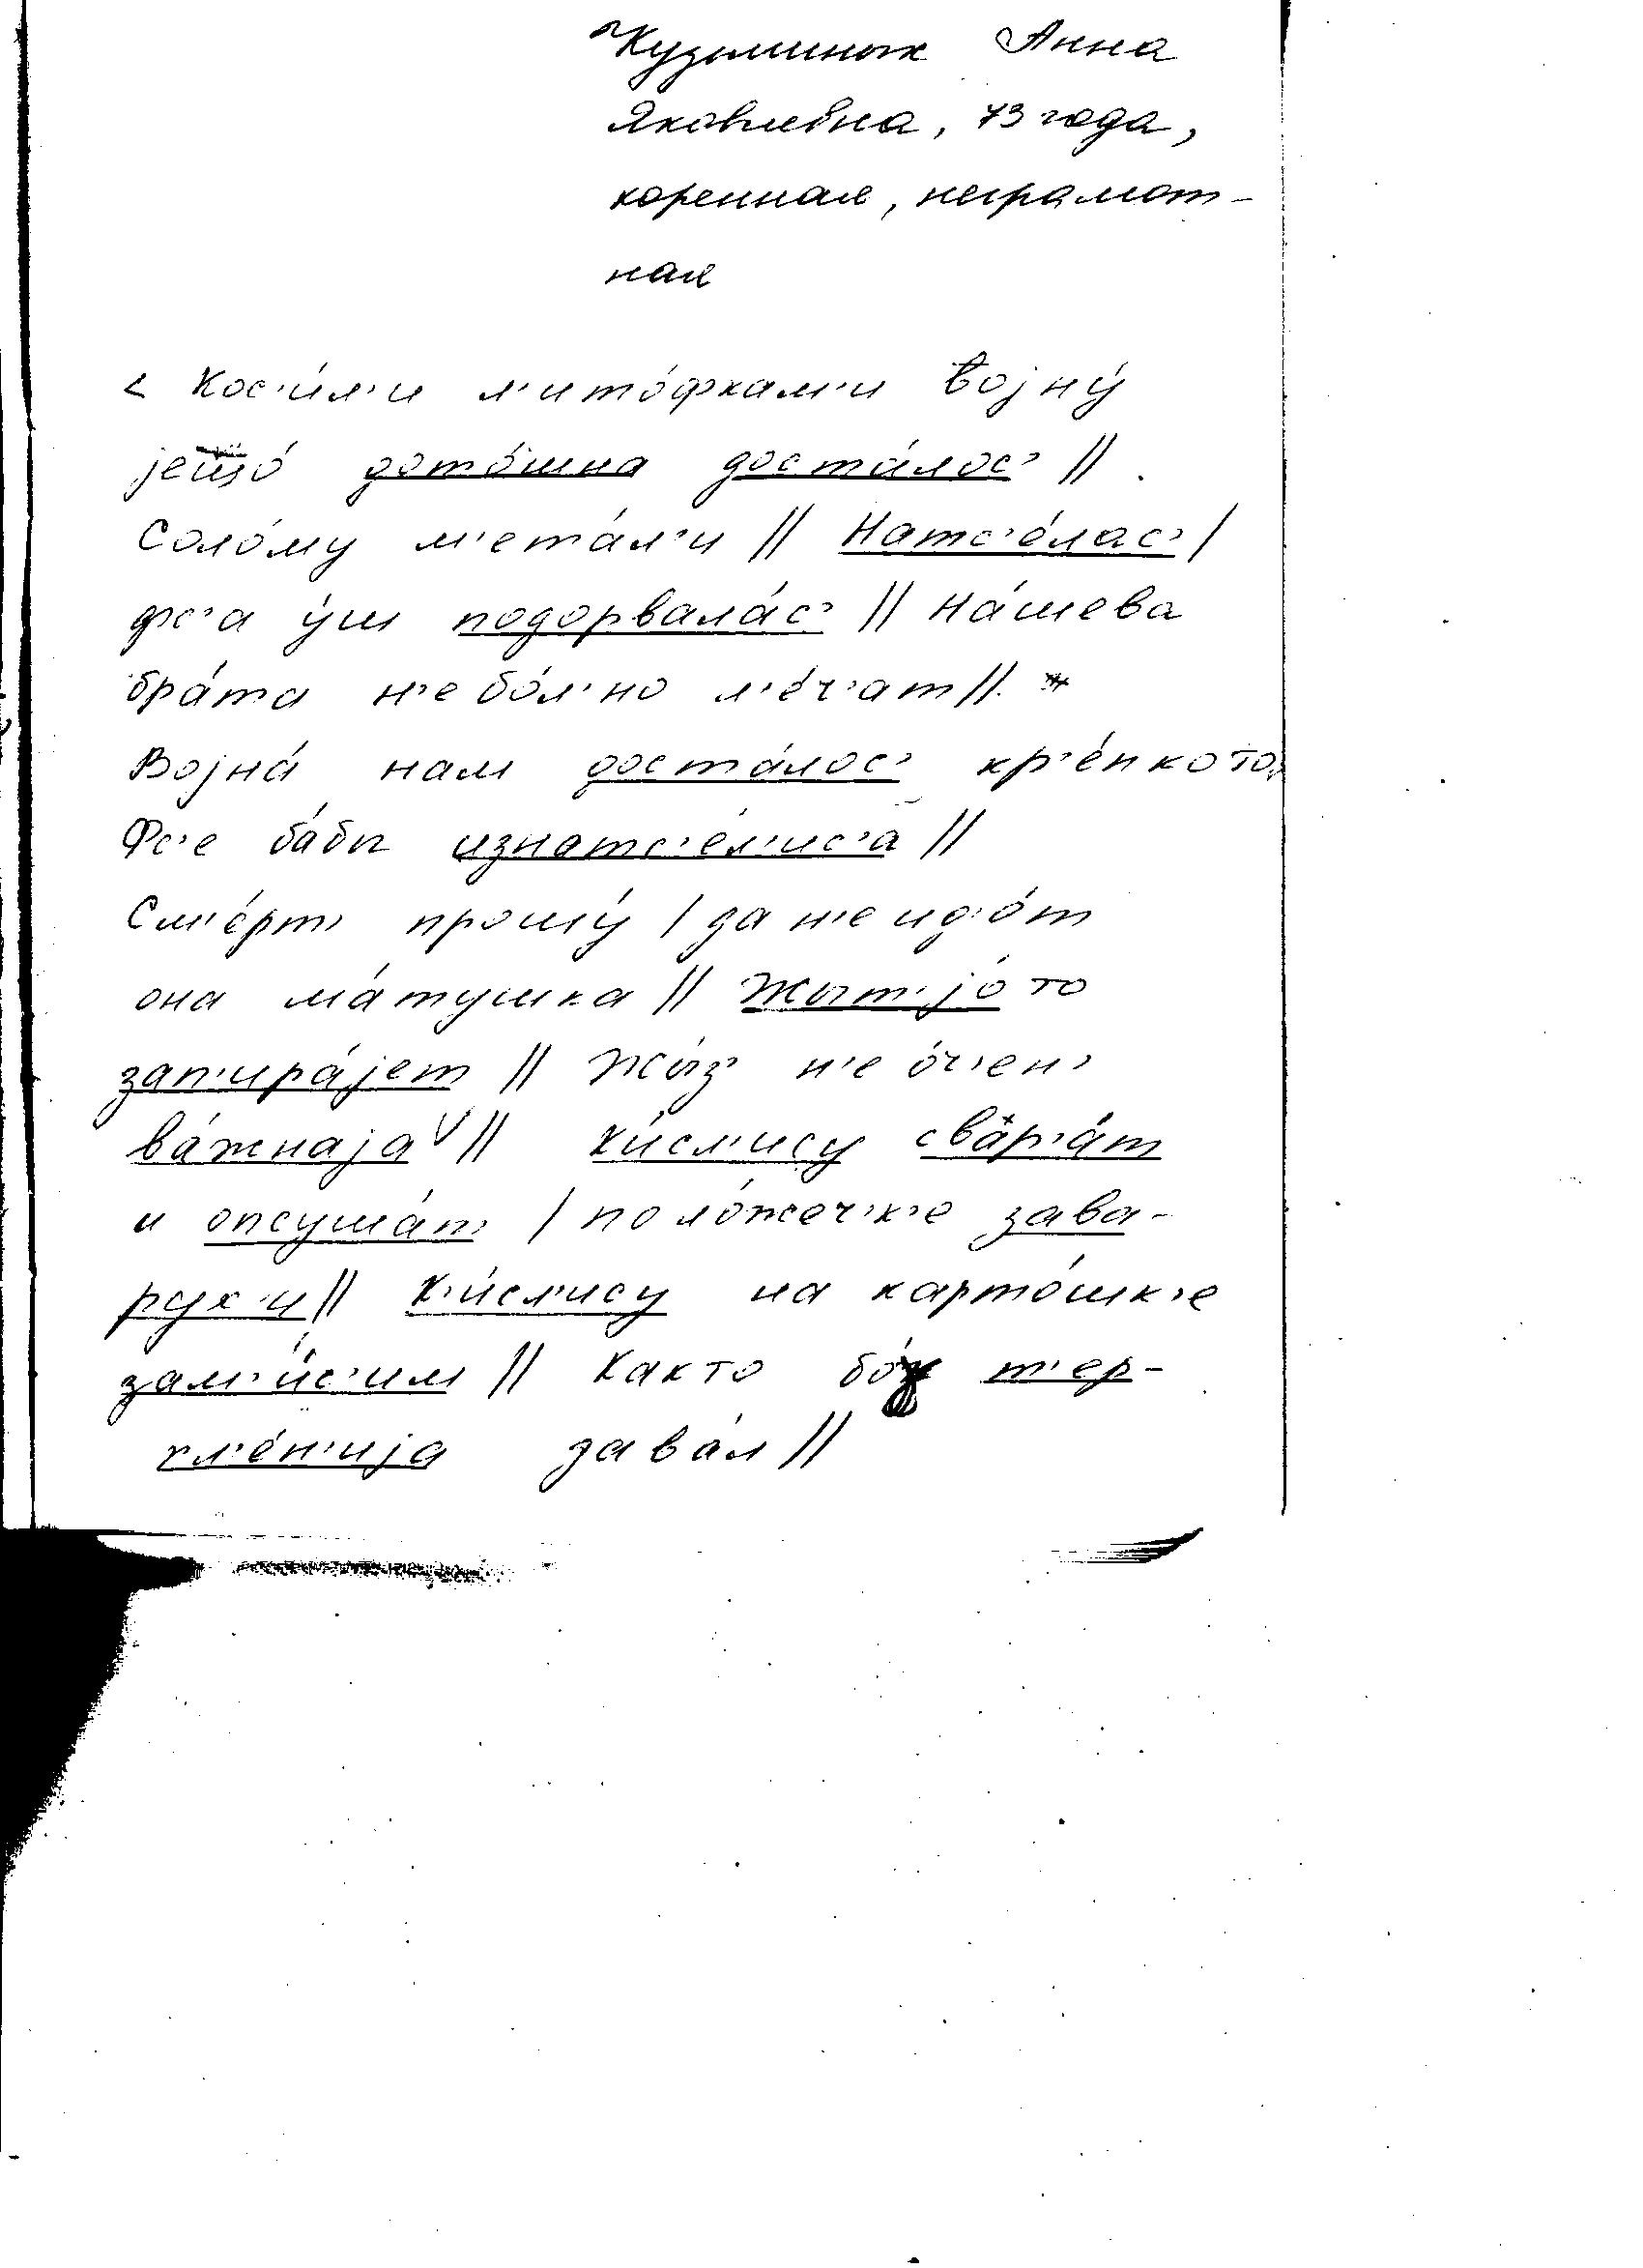 Кузьминых Анна
Яковлевна, 73 года,
коренная, неграмот-
ная
Кос'и́л'и л'ито́фкам'и војну́
јешо́ дото́шна доста́лос' //
Соло́му м'ета́л'и // Натс'е́лас' /
фс'а у́ш подорвала́с' // На́шева
бра́та н'е бо́л'но л'е́ч'ат //
Војна́ нам доста́лос' кр'е́пко то
Фс'е ба́бы изнатс'е́л'ис'а //
См'е́рт' прошу́ / да н'е ид'о́т
она ма́тушка // Жыт'јо́ то
зап'ира́јет // Жы́з' н'е о́ч'ен'
ва́жнаја // к'и́сл'ицу свар'а́т
и опсуша́т' / по ло́жеч'к'е зава-
рух'и // К'и́сл'ицу на карто́шк'е
зам'и́с'им // Как то бо́х т'ер-
пл'е́н'ија дава́л //